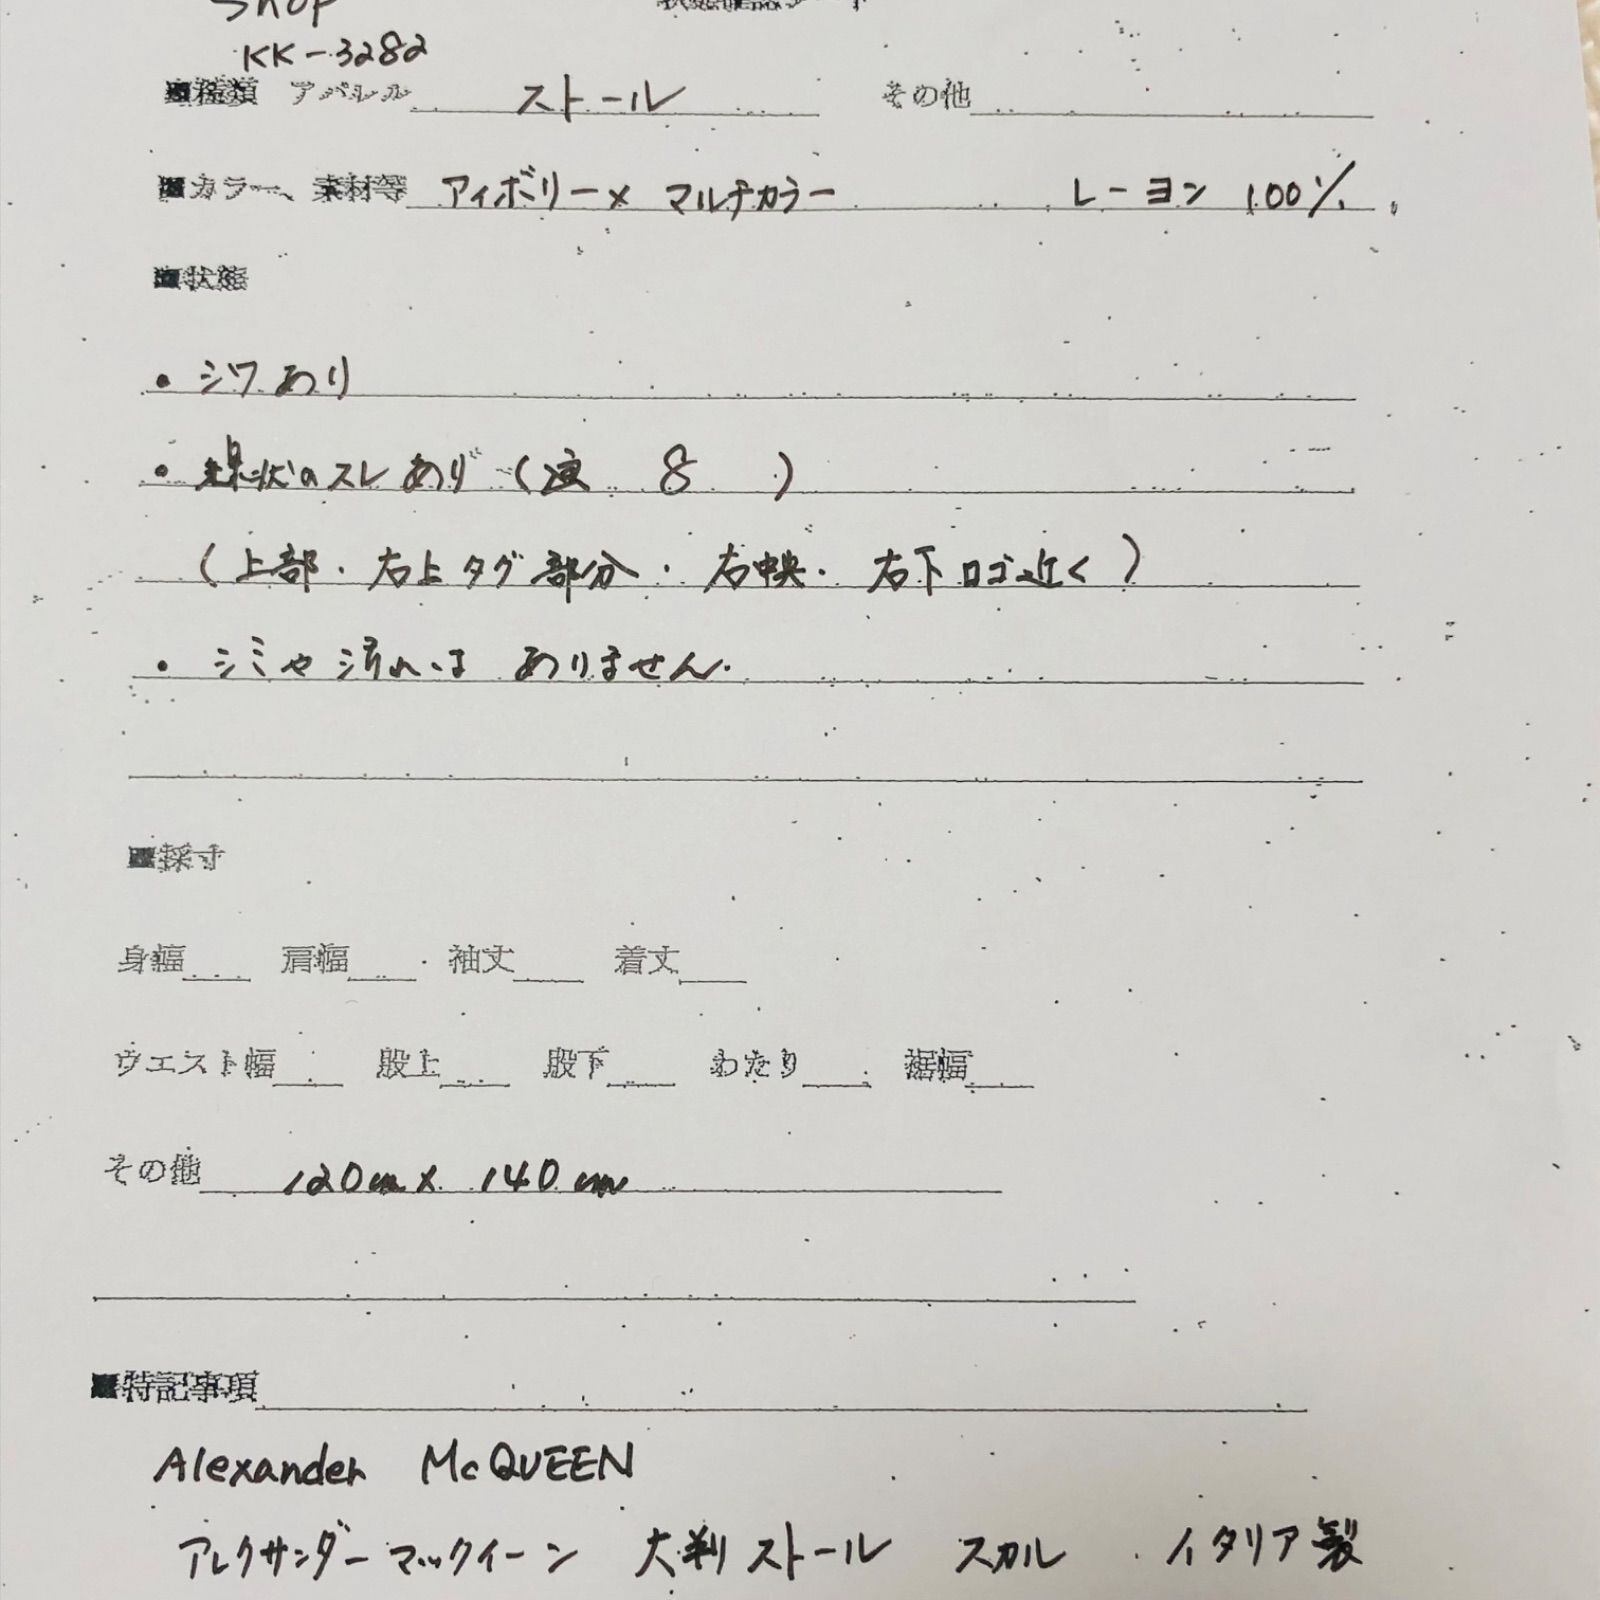 Shop
KK-3282
■種類 アパレル ストール その他
■カラー、素材等 アイボリー× マルチカラー レーヨン 100%
■状態
・シワあり
・線状のスレあり (点 8 )
(上部・右上タグ部分・右中央・右下ロゴ近く)
・シミや汚れは ありません.
■採寸
身幅 肩幅 袖丈 着丈
ウエスト幅 股上 股下 わたり 裾幅
その他 120cm× 140cm
■特記事項
Alexander McQUEEN
アレクサンダーマックイーン 大判ストール スカル イタリア製